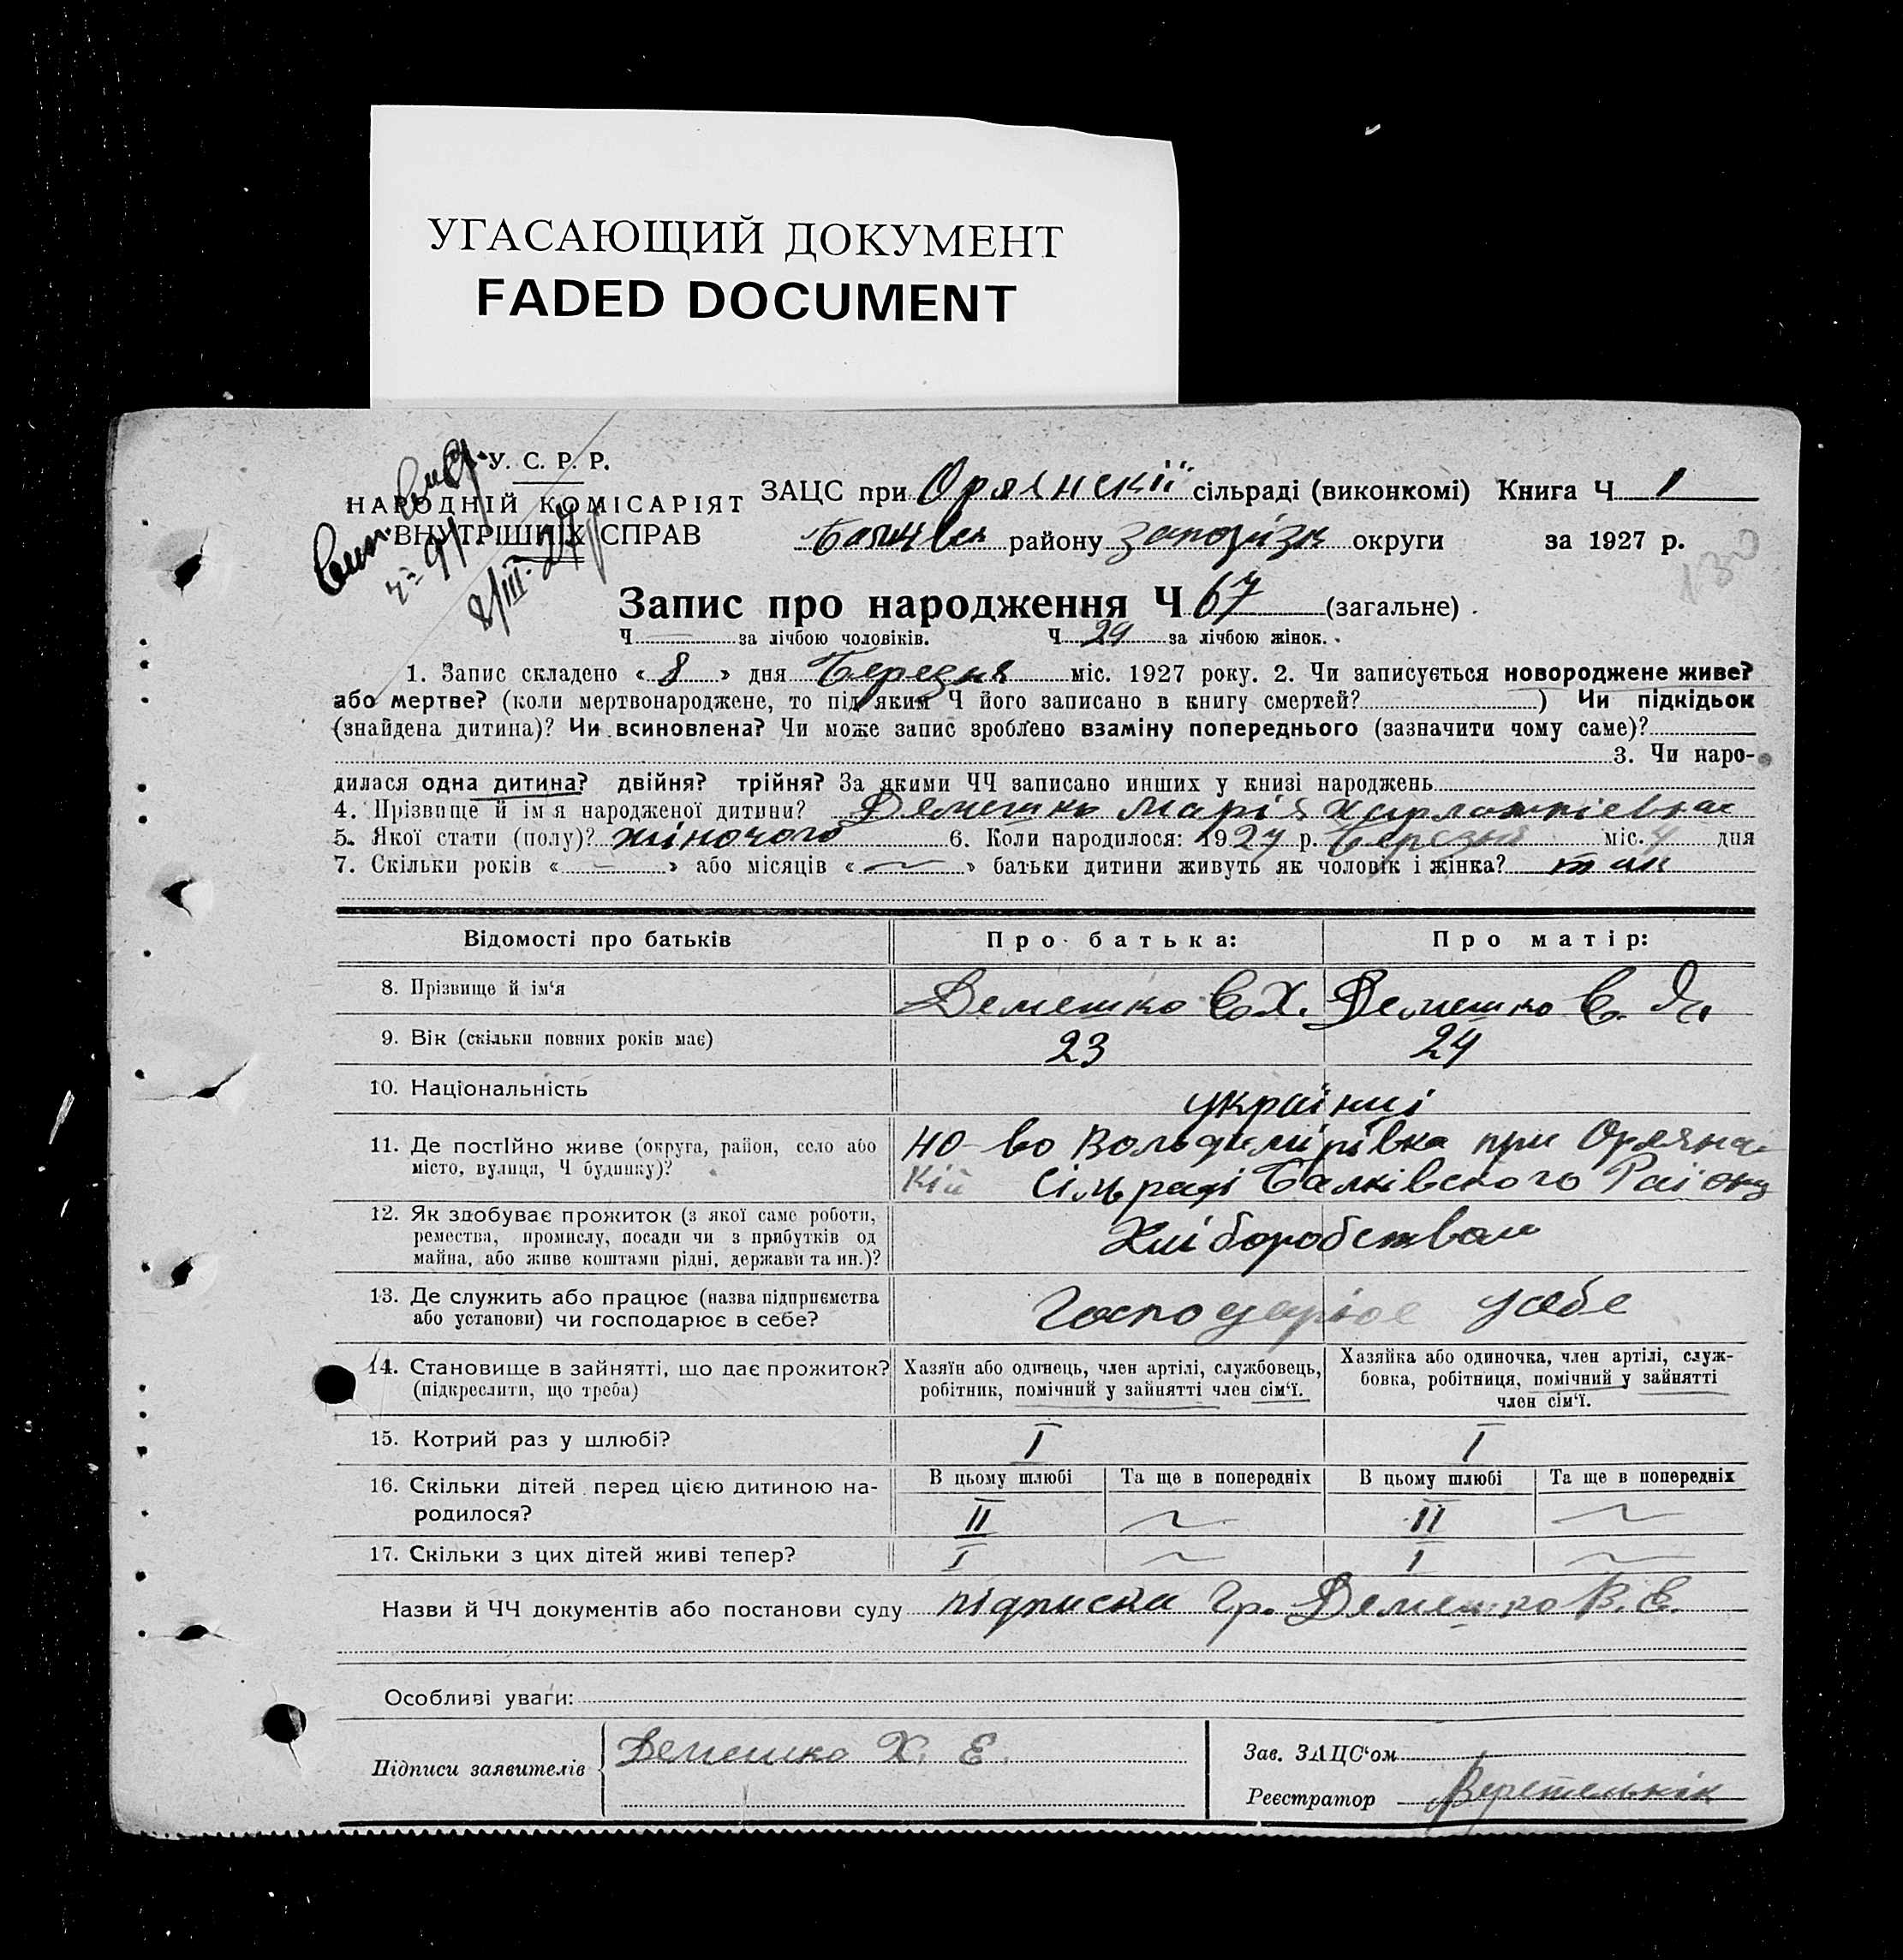 УГАСАЮЩИЙ ДОКУМЕНТ
FADED DOCUMENT
У. С. Р. Р.
НАРОДНІЙ КОМІСАРІЯТ
ВНУТРІШНІХ СПРАВ
8/III-27
ЗАЦС при Оряянскії сільраді (виконкомі) Книга Ч 1
району округи за 1927 р.
130
Запис про народження Ч 67 (загальне)
Ч за лічбою чоловіків. Ч 29 за лічбою жінок.
1. Запис складено « 8 » дня Березня міс. 1927 року. 2. Чи записується новороджене живе?
або мертве? (коли мертвонароджене, то під яким Ч його записано в книгу смертей? ) Чи підкідьок
(знайдена дитина)? Чи всиновлена? Чи може запис зроблено взаміну попереднього (зазначити чому саме)?
3. Чи наро-
дилася одна дитина? двійня? трійня? За якими ЧЧ записано инших у книзі народжень
4. Прізвище й ім'я народженої дитини? Демешко Марія Харлампієвна
5. Якої стати (полу)? жіночого 6. Коли народилося: 1927 р. Березня міс. 4 дня
7. Скільки років « — » або місяців « ~ » батьки дитини живуть як чоловік і жінка? так
Відомості про батьків Про батька: Про матір:
8. Прізвище й ім'я Демешко Е. Х. Демешко Е. Я.
9. Вік (скільки повних років має) 23 24
10. Національність українці
11. Де постІйно живе (округа, район, село або
місто, вулиця, Ч будинку)?
при
кій Сільраді Балківского Району
12. Як здобуває прожиток (з якої саме роботи,
ремества, промислу, посади чи з прибутків од
майна, або живе коштами рідні, держави та ин.)?
Хліборобством
13. Де служить або працює (назва підприємства
або установи) чи господарює в себе?
Господарює у себе
14. Становище в зайнятті, що дає прожиток?
(підкреслити, що треба)
Хазяїн або одинець, член артілі, службовець,
робітник, помічний у зайнятті член сім'ї.
Хазяйка або одиночка, член артілі, служ-
бовка, робітниця, помічний у зайнятті
член сім'ї.
15. Котрий раз у шлюбі? I I
16. Скільки дітей перед цією дитиною на-
родилося?
В цьому шлюбі Та ще в попередніх В цьому шлюбі Та ще в попередніх
II ~ II ~
17. Скільки з цих дітей живі тепер? I ~ I ~
Назви й ЧЧ документів або постанови суду підписка гр. Демешко В. Е.
Особливі уваги:
Підписи заявителів Демешко Х. Е.
Зав. ЗАЦС'ом
Реєстратор Веретельнік